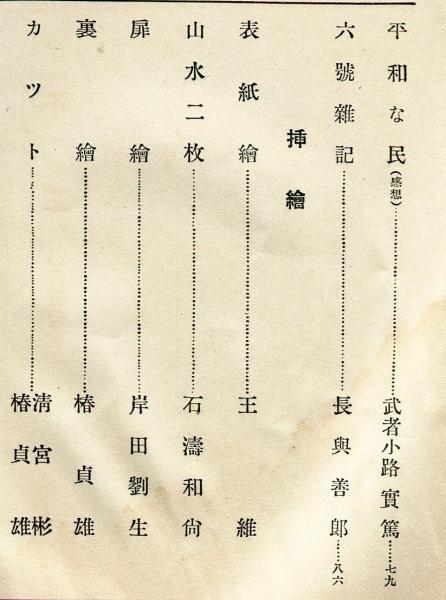 平和な民(感想)……武者小路實篤……七九
六號雜記……長與善郎……八六
挿繪
表紙繪……王維
山水二枚……石濤和尙
扉繪……岸田劉生
裏繪……椿貞雄
カツト……淸宮彬
椿貞雄